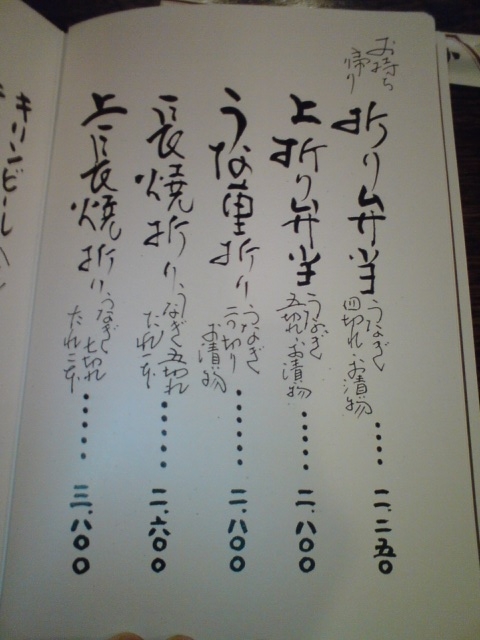 お持ち
帰り
折り弁当
うなぎ
四切れ・お漬物
二、二五〇
上折り弁当
うなぎ
五切れ・お漬物
二、八〇〇
うな重折り
うなぎ
二つ切り
お漬物
二、八〇〇
長焼折り
うなぎ五切れ
たれ一本
二、六〇〇
上長焼折り
うなぎ 七切れ
たれ二本
三、八〇〇
キリンビール